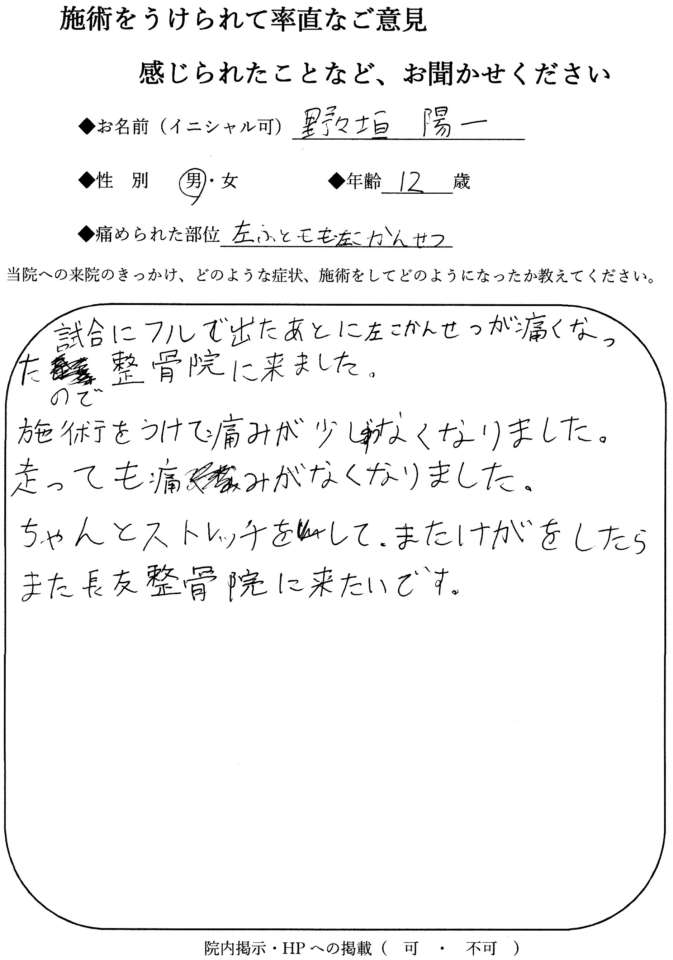 施術をうけられて率直なご意見
感じられたことなど、お聞かせください
◆お名前（イニシャル可） 野々垣 陽一
◆性 別 男・女 ◆年齢 12 歳
◆痛められた部位 左ふともも左こかんせつ
当院への来院のきっかけ、どのような症状、施術をしてどのようになったか教えてください。
試合にフルで出たあとに左こかんせつが痛くなっ
た 整骨院に来ました。
ので
施術をうけて痛みが少しなくなりました。
走っても痛みがなくなりました。
ちゃんとストレッチをして、またけがをしたら
また長友整骨院に来たいです。
院内掲示・HPへの掲載（ 可 ・ 不可 ）